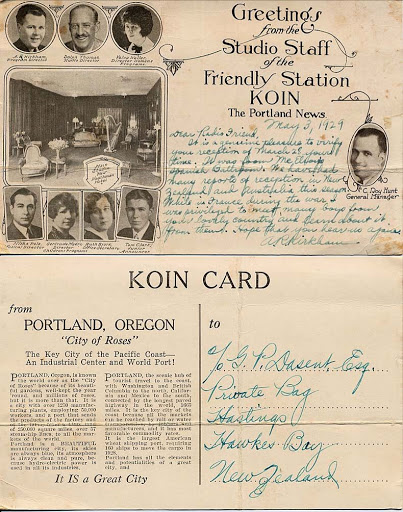 Greetings
from the
Studio Staff
of the
Friendly Station
KOIN
The Portland News
May 3, 1929
Dear Radio Friend,
It is a genuine pleasure to verify
your reception of March 28, your
time. It was from McElroy's
Spanish Ballroom. We have had
many reports of reception in New
Zealand and Australia this season.
While in France during the war I
was privileged to meet many boys from
your lovely country and learn about it
from them. Hope that you hear us again.
A.R. Kirkham
Program Director
Studio Director
Director Womens
Programs
C. Roy Hunt
General Manager
Musical Director
Gertrude Myers
Director
Children's Programs
Ruth Byers
Office Secretary
Tom Clark
Announcer
KOIN CARD
from
PORTLAND, OREGON
"City of Roses"
The Key City of the Pacific Coast—
An Industrial Center and World Port!
PORTLAND, Oregon, is known
the world over as the "City
of Roses" because of its beauti-
ful gardens, well-kept the year
'round, and millions of roses,
but it is more than that. It is
a city with over 1250 manufac-
turing plants, employing 50,000
workers, and a port that sends
the products of the factory and
steamship lines, to all the mar-
kets of the world.
Portland is a BEAUTIFUL
manufacturing city, its skies
are always blue, its atmosphere
is always clean and pure, be-
cause hydro-electric power is
used in all its industries.
PORTLAND, the scenic hub of
tourist travel to the coast,
with Washington and British
Columbia to the north, Califor-
nia and Mexico to the south,
connected by the longest paved
highway in the world, 1665
miles. It is the key city of the
coast because all the markets
can be reached by rail or water
manufacturers, and at less most
favorable commodity rates.
It is the largest American
wheat shipping port, requiring
288 ships to move the cargo in
1928.
Portland has all the elements
and potentialities of a great
city, and
It IS a Great City
to
G. P. Dasent, Esq.
Private Bag
Hastings
Hawkes Bay
New Zealand